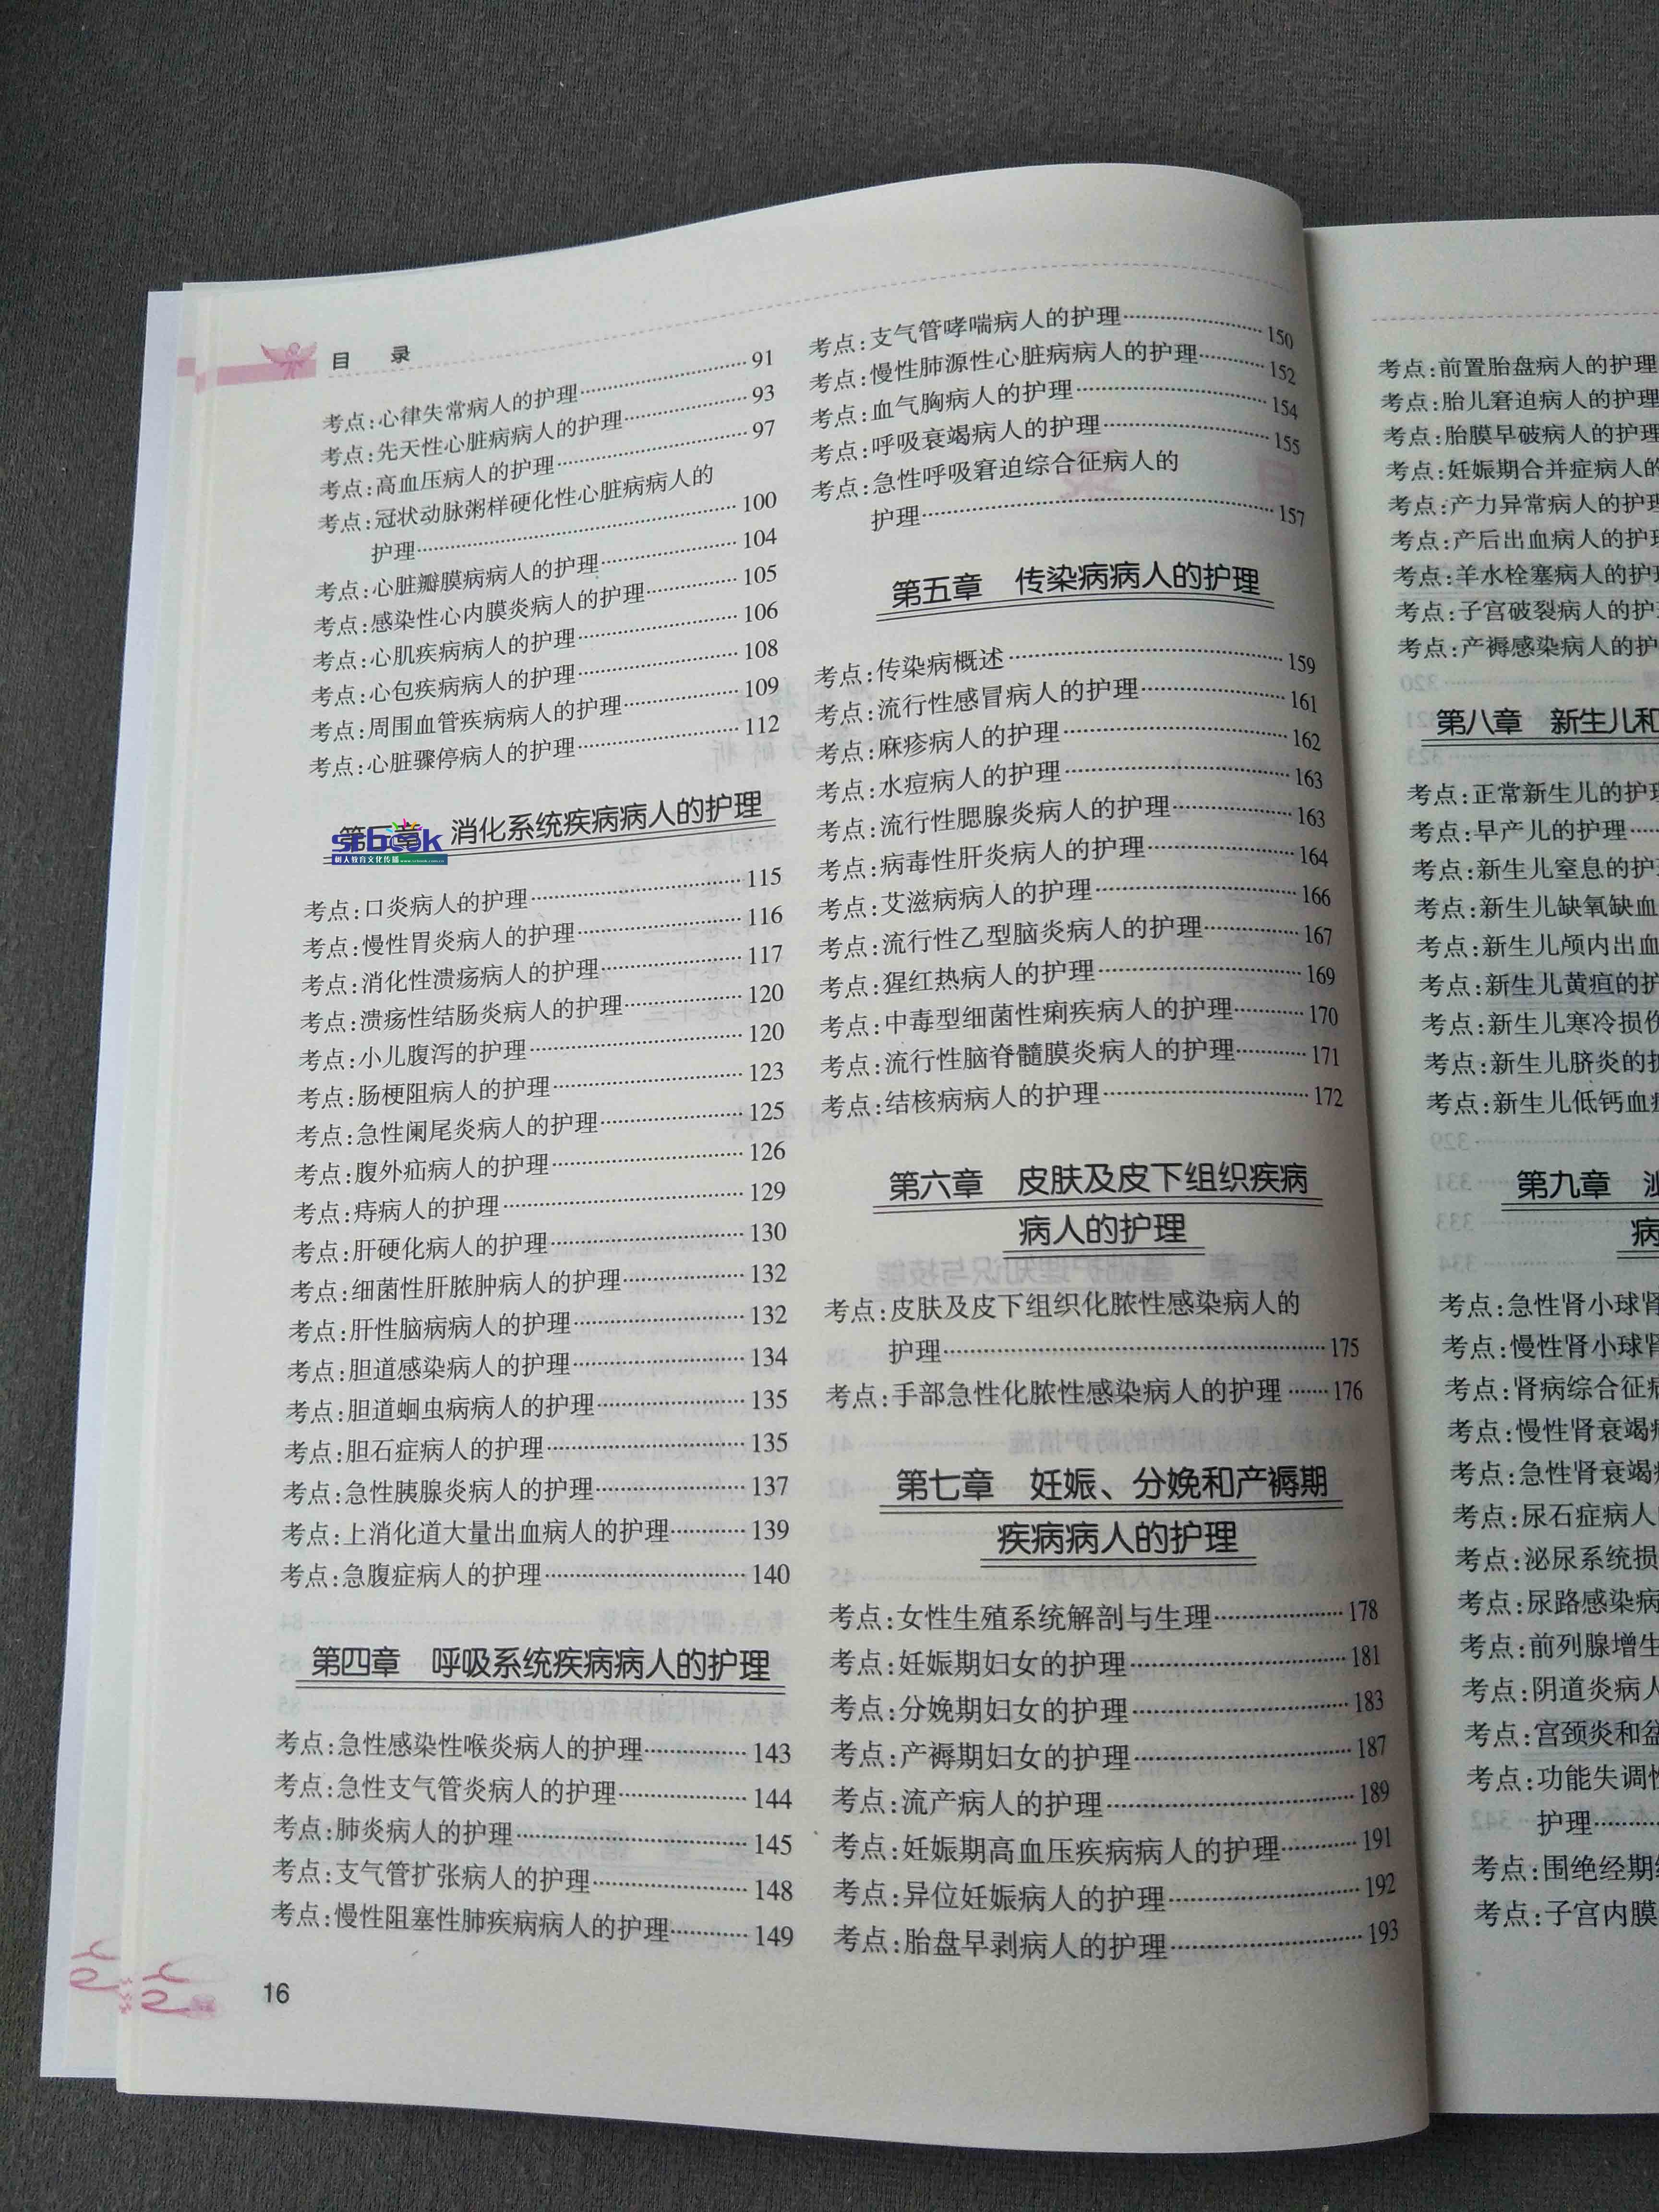 目 录
考点:心律失常病人的护理 91
考点:先天性心脏病病人的护理 93
考点:高血压病人的护理 97
考点:冠状动脉粥样硬化性心脏病病人的
护理 100
考点:心脏瓣膜病病人的护理 104
考点:感染性心内膜炎病人的护理 105
考点:心肌疾病病人的护理 106
考点:心包疾病病人的护理 108
考点:周围血管疾病病人的护理 109
考点:心脏骤停病人的护理 112
消化系统疾病病人的护理
srbook
树人教育文化传播
考点:口炎病人的护理 115
考点:慢性胃炎病人的护理 116
考点:消化性溃疡病人的护理 117
考点:溃疡性结肠炎病人的护理 120
考点:小儿腹泻的护理 120
考点:肠梗阻病人的护理 123
考点:急性阑尾炎病人的护理 125
考点:腹外疝病人的护理 126
考点:痔病人的护理 129
考点:肝硬化病人的护理 130
考点:细菌性肝脓肿病人的护理 132
考点:肝性脑病病人的护理 132
考点:胆道感染病人的护理 134
考点:胆道蛔虫病病人的护理 135
考点:胆石症病人的护理 135
考点:急性胰腺炎病人的护理 137
考点:上消化道大量出血病人的护理 139
考点:急腹症病人的护理 140
第四章 呼吸系统疾病病人的护理
考点:急性感染性喉炎病人的护理 143
考点:急性支气管炎病人的护理 144
考点:肺炎病人的护理 145
考点:支气管扩张病人的护理 148
考点:慢性阻塞性肺疾病病人的护理 149
16
考点:支气管哮喘病人的护理 150
考点:慢性肺源性心脏病病人的护理 152
考点:血气胸病人的护理 154
考点:呼吸衰竭病人的护理 155
考点:急性呼吸窘迫综合征病人的
护理 157
第五章 传染病病人的护理
考点:传染病概述 159
考点:流行性感冒病人的护理 161
考点:麻疹病人的护理 162
考点:水痘病人的护理 163
考点:流行性腮腺炎病人的护理 163
考点:病毒性肝炎病人的护理 164
考点:艾滋病病人的护理 166
考点:流行性乙型脑炎病人的护理 167
考点:猩红热病人的护理 169
考点:中毒型细菌性痢疾病人的护理 170
考点:流行性脑脊髓膜炎病人的护理 171
考点:结核病病人的护理 172
第六章 皮肤及皮下组织疾病
病人的护理
考点:皮肤及皮下组织化脓性感染病人的
护理 175
考点:手部急性化脓性感染病人的护理 176
第七章 妊娠、分娩和产褥期
疾病病人的护理
考点:女性生殖系统解剖与生理 178
考点:妊娠期妇女的护理 181
考点:分娩期妇女的护理 183
考点:产褥期妇女的护理 187
考点:流产病人的护理 189
考点:妊娠期高血压疾病病人的护理 191
考点:异位妊娠病人的护理 192
考点:胎盘早剥病人的护理 193
考点:前置胎盘病人的护理
考点:胎儿窘迫病人的护理
考点:胎膜早破病人的护理
考点:妊娠期合并症病人的
考点:产力异常病人的护理
考点:产后出血病人的护理
考点:羊水栓塞病人的护理
考点:子宫破裂病人的护
考点:产褥感染病人的护
第八章 新生儿和
考点:正常新生儿的护理
考点:早产儿的护理
考点:新生儿窒息的护
考点:新生儿缺氧缺血
考点:新生儿颅内出血
考点:新生儿黄疸的护
考点:新生儿寒冷损伤
考点:新生儿脐炎的护
考点:新生儿低钙血症
第九章 泌
病
考点:急性肾小球肾
考点:慢性肾小球肾
考点:肾病综合征病
考点:慢性肾衰竭病
考点:急性肾衰竭
考点:尿石症病人
考点:泌尿系统损
考点:尿路感染病
考点:前列腺增生
考点:阴道炎病人
考点:宫颈炎和盆
考点:功能失调性
护理
考点:围绝经期
考点:子宫内膜